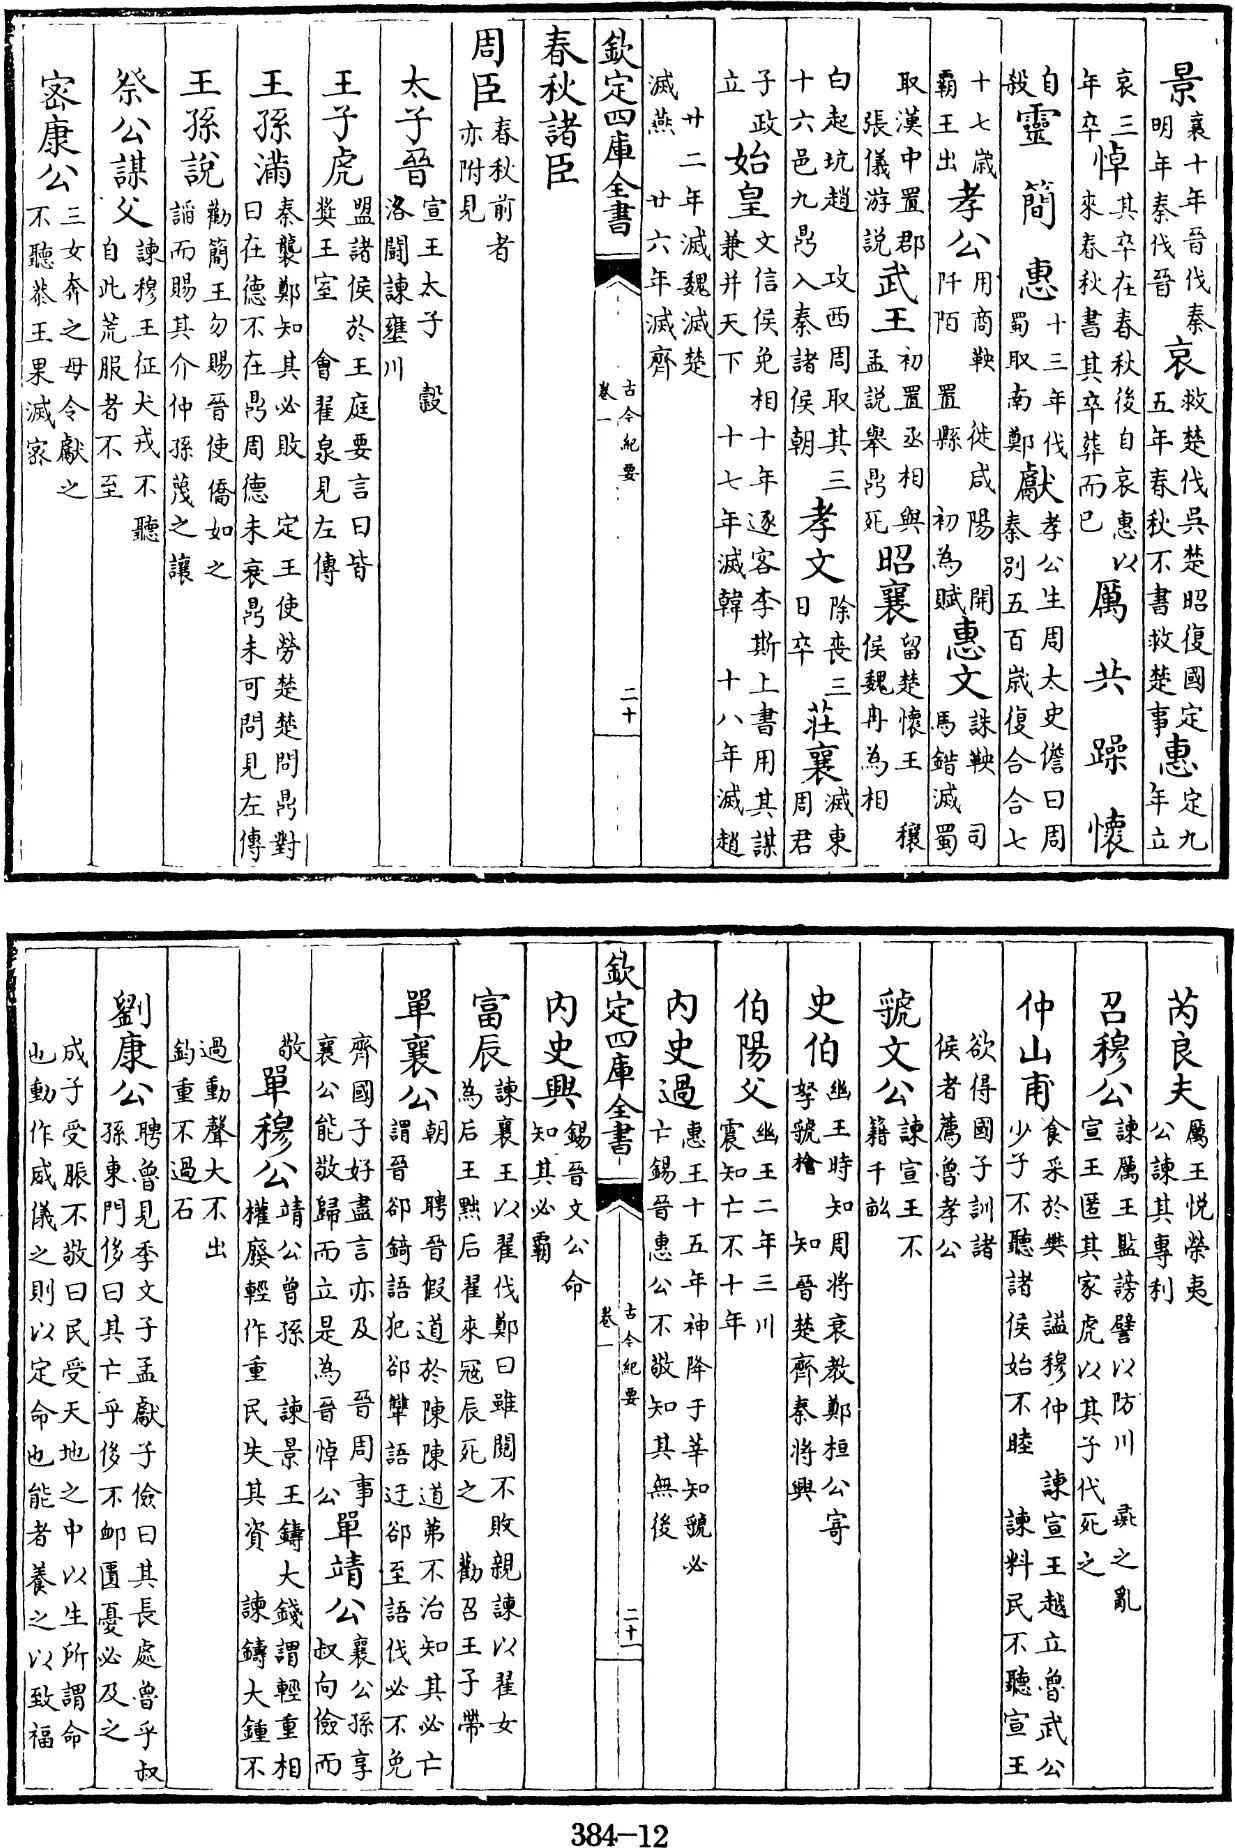 景襄十年晉伐秦明年秦伐晉哀救楚伐吳楚昭復國定五年春秋不書救楚事惠定九年立
哀三年卒悼其卒在春秋後自哀惠以來春秋書其卒葬而已厲 共 躁 懷
自殺靈 簡 惠十三年伐蜀取南鄭獻孝公生周太史儋曰周秦別五百歲復合合七
十七歲霸王出孝公用商鞅 徙咸陽 開阡陌 置縣 初為賦惠文誅鞅 司馬錯滅蜀
取漢中置郡張儀游說武王初置丞相與孟說舉鼎死昭襄留楚懷王 穰侯魏冉為相
白起坑趙 攻西周取其三十六邑九鼎入秦諸侯朝孝文除喪三日卒莊襄滅東周君
子政立始皇文信侯免相十年逐客李斯上書用其謀兼并天下 十七年滅韓 十八年滅趙
廿二年滅魏滅楚滅燕 廿六年滅齊
欽定四庫全書 古今紀要 卷一 二十
春秋諸臣
周臣春秋前者亦附見
太子晉宣王太子 穀洛鬭諫壅川
王子虎盟諸侯於王庭要言曰皆奬王室 會翟泉見左傳
王孫滿秦襲鄭知其必敗 定王使勞楚楚問鼎對曰在德不在鼎周德未衰鼎未可問見左傳
王孫說勸簡王勿賜晉使僑如之謟而賜其介仲孫蔑之讓
祭公謀父諫穆王征犬戎不聽自此荒服者不至
密康公三女奔之母令獻之不聽恭王果滅宻
芮良夫厲王悅榮夷公諫其專利
召穆公諫厲王監謗譬以防川 彘之亂宣王匿其家虎以其子代死之
仲山甫食采於樊 諡穆仲 諫宣王越立魯武公少子不聽諸侯始不睦 諫料民不聽宣王
欲得國子訓諸侯者薦魯孝公
虢文公諫宣王不籍千畝
史伯幽王時知周將衰教鄭桓公寄孥虢檜 知晉楚齊秦將興
伯陽父幽王二年三川震知亡不十年
內史過惠王十五年神降于莘知虢必亡錫晉惠公不敬知其無後
內史興錫晉文公命知其必霸
欽定四庫全書 古今紀要 卷一 二十一
富辰諫襄王以翟伐鄭曰雖鬩不敗親諫以翟女為后王黜后翟來冦辰死之 勸召王子帶
單襄公朝 聘晉假道於陳陳道茀不治知其必亡謂晉郤錡語犯郤犨語迂郤至語伐必不免
齊國子好盡言亦及 晉周事襄公能敬歸而立是為晉悼公單靖公襄公孫享叔向儉而
敬單穆公靖公曾孫 諫景王鑄大錢謂輕重相權廢輕作重民失其資 諫鑄大鍾不
過動聲大不出鈞重不過石
劉康公聘魯見季文子孟獻子儉曰其長處魯乎叔孫東門侈曰其亡乎侈不䘏匱憂必及之
成子受脤不敬曰民受天地之中以生所謂命也動作威儀之則以定命也能者養之以致福
384-12